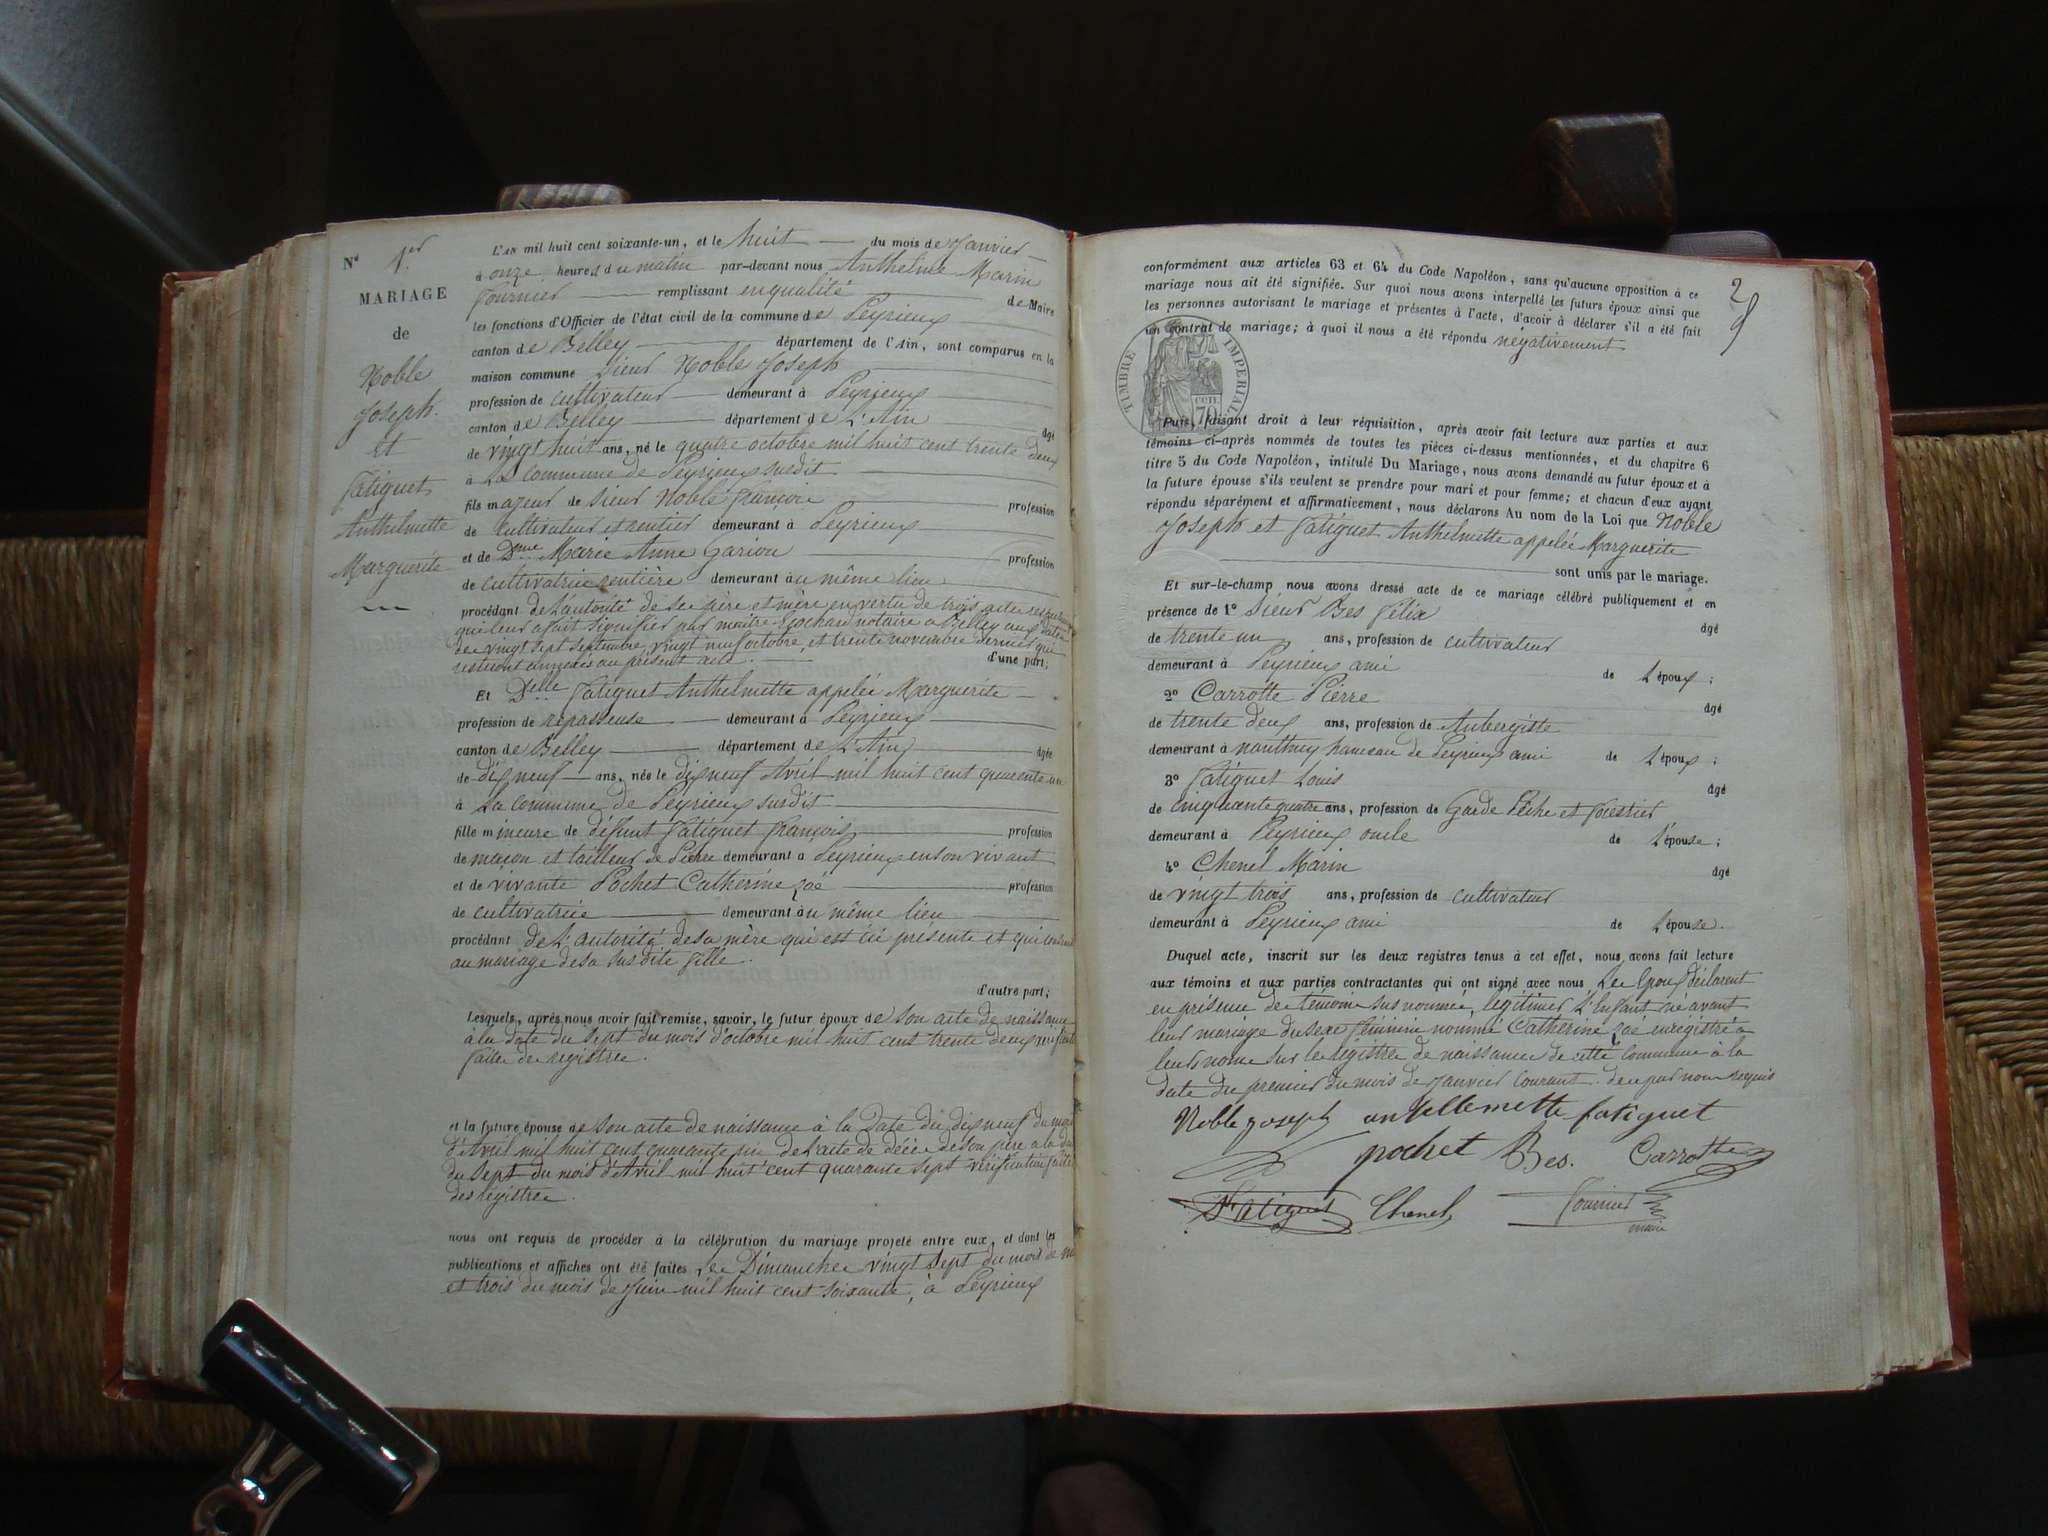 N° 1er
MARIAGE
de
Noble
Joseph
Et
Fatiguet
Anthelmette
Marguerite
L'AN mil huit cent soixante-un, et le huit du mois de Janvier
à onze heures du matin par-devant nous Anthelme Marin
Fournier remplissant en qualité de Maire
les fonctions d'Officier de l'état civil de la commune de Peyrieux
canton de Belley département de l'Ain, sont comparus en la
maison commune Sieur Noble Joseph
profession de cultivateur demeurant à Peyrieux
canton de Belley département de L'Ain âgé
de vingt huit ans, né le quatre octobre mil huit cent trente deux
à La commune de Peyrieux susdit
fils majeur de Sieur Noble François profession
de cultivateur et rentier demeurant à Peyrieux
et de Dme Marie Anne Gariou profession
de cultivatrice rentière demeurant au même lieu
procédant de L'autorité de ses père et mère en vertu de trois actes
qui leur a fait signifier par maître notaire a Belley aux dates
des vingt sept septembre, vingt neuf octobre, et trente novembre dernier qui
resteront annexés au présent acte. d'une part;
Et Delle Fatiguet Anthelmette appelée Marguerite
profession de repasseuse demeurant à Peyrieux
canton de Belley département de L'Ain âgée
de dix neuf ans, née le dix neuf Avril mil huit cent quarante un
à La commune de Peyrieux susdit
fille mineure de défunt Fatiguet François profession
de maçon et tailleur de Pierre demeurant a Peyrieux en son vivant
et de vivante Pochet Catherine Zoé profession
de cultivatrice demeurant au même lieu
procédant de L'autorité de sa mère qui est ici présente et qui consent
au mariage de sa susdite fille.
d'autre part;
Lesquels, après nous avoir fait remise, savoir, le futur époux de son acte de naissance
à la date du sept du mois d'octobre mil huit cent trente deux vérification
faite des registres.
et la future épouse de son acte de naissance à la date du dix neuf du mois
d'Avril mil huit cent quarante un de L'acte de décès de son père a la date
du sept du mois d'Avril mil huit cent quarante sept vérification faite
des registres.
nous ont requis de procéder à la célébration du mariage projeté entre eux, et dont les
publications et affiches ont été faites les Dimanches vingt sept du mois de mai
et trois du mois de Juin mil huit cent soixante, à Peyrieux
2
conformément aux articles 63 et 64 du Code Napoléon, sans qu'aucune opposition à ce
mariage nous ait été signifiée. Sur quoi nous avons interpellé les futurs époux ainsi que
les personnes autorisant le mariage et présentes à l'acte, d'avoir à déclarer s'il a été fait
un contrat de mariage; à quoi il nous a été répondu négativement
TIMBRE IMPERIAL
CEN.
70
Puis, faisant droit à leur réquisition, après avoir fait lecture aux parties et aux
témoins ci-après nommés de toutes les pièces ci-dessus mentionnées, et du chapitre 6
titre 5 du Code Napoléon, intitulé Du Mariage, nous avons demandé au futur époux et à
la future épouse s'ils veulent se prendre pour mari et pour femme; et chacun d'eux ayant
répondu séparément et affirmativement, nous déclarons Au nom de la Loi que Noble
Joseph et Fatiguet Anthelmette appelée Marguerite
sont unis par le mariage.
Et sur-le-champ nous avons dressé acte de ce mariage célébré publiquement et en
présence de 1° Sieur Bes Félix âgé
de trente un ans, profession de cultivateur
demeurant à Peyrieux ami de L'époux;
2° Carrotte Pierre âgé
de trente deux ans, profession de Aubergiste
demeurant à nanthuy hameau de Peyrieux ami de L'époux;
3° Fatiguet Louis âgé
de cinquante quatre ans, profession de Garde Pêche et forestier
demeurant à Peyrieux oncle de L'épouse;
4° Chenel Marin âgé
de vingt trois ans, profession de cultivateur
demeurant à Peyrieux ami de L'épouse.
Duquel acte, inscrit sur les deux registres tenus à cet effet, nous avons fait lecture
aux témoins et aux parties contractantes qui ont signé avec nous Les Epoux déclarent
en présence des témoins sus nommés, légitimer L'Enfant né avant
leur mariage du sexe féminin nommé Catherine Zoé enregistré a
leurs noms sur les registres de naissances de cette commune à la
date du premier du mois de Janvier courant. de ce par nous requis
Noble joseph anthelmette fatiguet
pochet Bes. Carrotte
Fatiguet Chenel Fournier
maire